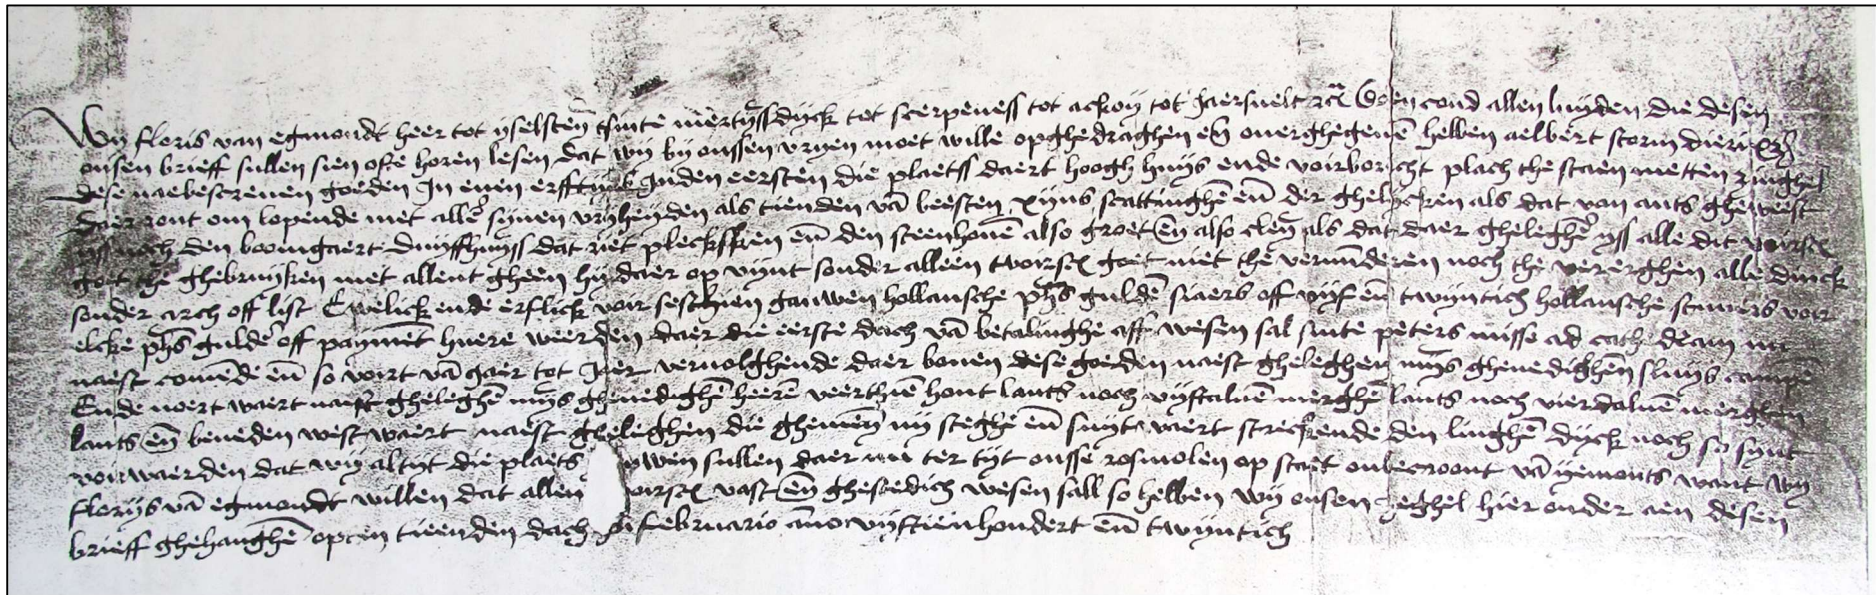 Wij floris van egmondt heer tot yselsteyn tsinte mertijssdijck tot scerpeness tot ackoy tot Jaersuelt etc doen cond allen luyden die desen
onsen brieff sullen sien ofte horen lesen dat wij bij onssen vryen moet wille opghedraghen en ouerghegeuē hebben aelbert storm
dese naebescreuen goeden In enen erfftijns Inden eersten die plaetss daert hoogh huys ende voirborcht plach the staen metten ringhe
daer ront om lopende met alle synen vryheyden als tienden vā beesten xijns scattinghē eñ der ghelijcken als dat van ants gheweest
yss noch den boomgaert duyffhuyss dat riet pleckskien eñ den steenhouē also groet eñ also cleyn als dat daer gheleghē yss alle dit voirsc
goet the ghebruyken met allent gheen hij daer op vijnt sonder alleen tvoirsc goet niet the verminderen noch the verergheren alle dinck
sonder arch off list Ewelick ende erflick voir sesthien gauwen hollansche phs guldē siaers off vijf eñ twijntich hollansche stuuers voir
elcke phs guldē off paymēt huere weerden daer die eerste dach vā betalinghe aff wesen sal sinte peters misse ad cathedram nu
naest comēde eñ so voirt vā jaer tot Jaer veruolghende daer bouen dese goeden naest gheleghen mijns ghenedighen sluys
Ende noert waert naest gheleghē mijs ghenedighē heerē veerthiē hont lants noch vijftaluē merghē lants noch vierdaluē merghen
lants eñ beneden west waert naest gheleghen die ghemeyn steghe eñ suyt waert streckende den linghē dyck noch so synt
voirwaerden dat wij altijt die plaets sullen daer nu ter tijt onsse rosmolen op staet onbecroont vā yemonts want wij
florijs vā egmondt willen dat allent voirsc vast eñ ghestedich wesen sall so hebben wij onsen zeghel hier onder aen desen
brieff ghehanghē opten tienden dach In februario āno vijftienhondert eñ twijntich